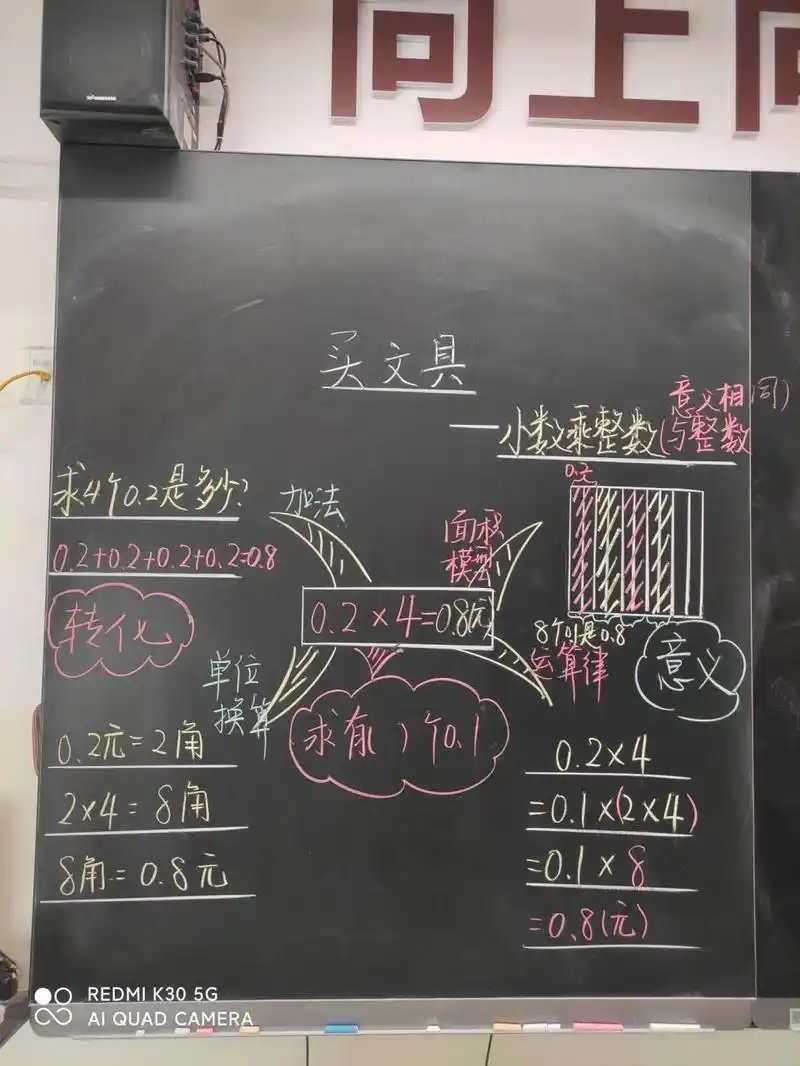 向上向
买文具
—小数乘整数(与整数
意义相同)
求4个0.2是多少?
0.2+0.2+0.2+0.2=0.8
转化
加法
面积
模型
0.2元
0.2×4=0.8(元)
8个0.1是0.8
单位
换算
运算律
意义
求有( )个0.1
0.2元=2角
2×4=8角
8角=0.8元
0.2×4
=0.1×(2×4)
=0.1×8
=0.8(元)
REDMI K30 5G
AI QUAD CAMERA